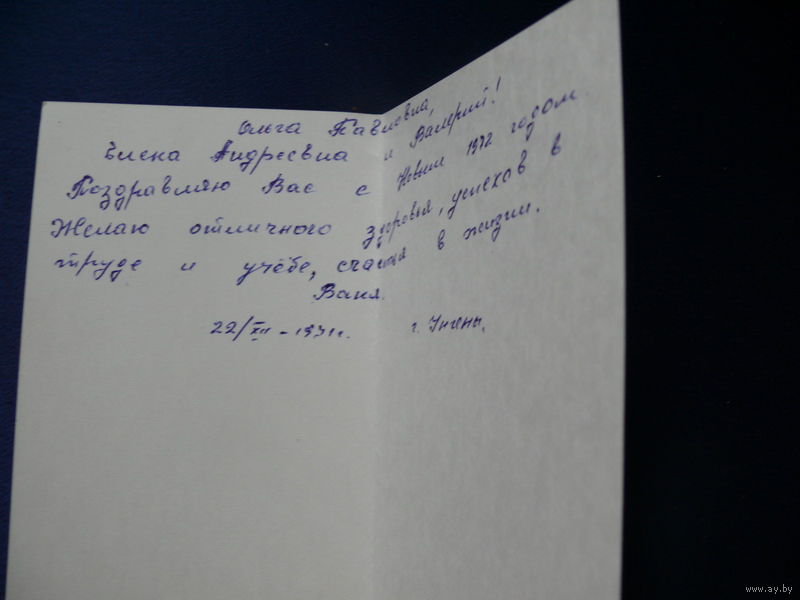 Ольга Павловна,
Елена Андреевна и Валерий!
Поздравляю Вас с Новым 1972 годом.
Желаю отличного здоровья, успехов в
труде и учёбе, счастья в жизни.
Ваня.
22/XII - 1971г. г. Унгены.
www.ay.by